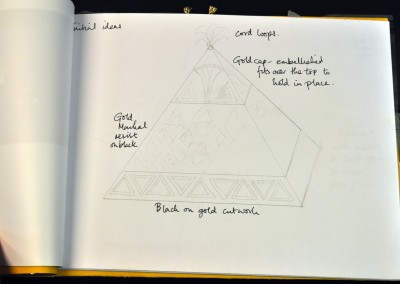 initial ideas
cord loops.
Gold cap - embellished
fits over the top to
hold in place.
Gold,
resist
on black
Black on gold cutwork